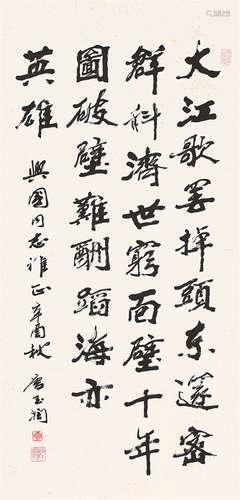 大江歌罢掉頭东邃密
群科濟世窮面壁十年
圖破壁難酬蹈海亦
英雄
興國同志雅正 辛酉秋
唐玉潤